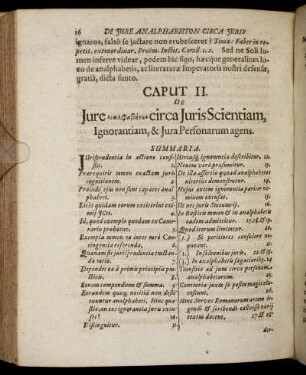 16 DE JURE ANALPHABETON CIRCA JURIS
ignaros, falsò se jactare non erubesceret? Tinea: Faber in re-
petit. extraordinar. Proœm. Instit. Concl. 1. 2. Sed ne Soli lu-
men inferre videar, pedem hîc figo, hæcque generalium lo-
co de analphabetis, ac literaturæ Imperatoris nostri defensæ,
gratiâ, dicta sunto.
CAPUT II.
DE
Jure circa Juris Scientiam,
Ignorantiam, & Jura Personarum agens.
SUMMARIA.
Jurisprudentia in actione consi-
stit. 1.
Præsupponit tamen exactam juris
cognitionem. 2.
Proinde ejus non sunt capaces anal-
phabeti. 3.
Licet quidam eorum exstiterint exi-
mii JCti. 4.
Id, quod exemplo quodam ex Came-
rario probatur. 5.
Exempla tamen ea inter rara Con-
tingentia referenda. 6.
Quænam sit jurisprudentia tracta-
da ratio. 7.
Dependet ea à primis principiis pu-
blicis. 8.
Eorum compendium & summa. 9.
Eorundem quoq; notitiâ non desti-
tuuntur analphabeti. Hinc quæ-
stio an eos ignorantia juris excu-
set? 10.
Distinguitur. 11.
Utriusq; ignorantia describitur. 12.
Neutra verò præsumitur. 13.
De illa assertio quoad analphabetos
ulterius demonstratur. 14.
Nuda autem ignorantia pariter ne-
minem excusat. 15.
Nec jus nescientis. 16.
In Rusticis tamen & in analphabetis
eadem admittitur. 17. & 18.
Quod iterum limitatur. 19.
(1.) Si peritiores consulere ne-
queant. 20.
In solennibus juris. 21. & 22.
(3.) In analphabeto sagaci & callido. 23.
Transitio ad jura circa personam
analphabetorum. 24.
Contraria juxta se posita magis elu-
cescunt. 25.
Hinc Servos Romanorum etiam le-
gendi & scribendi callentes rariùs
textus docent. 27. & 28.
Ser-